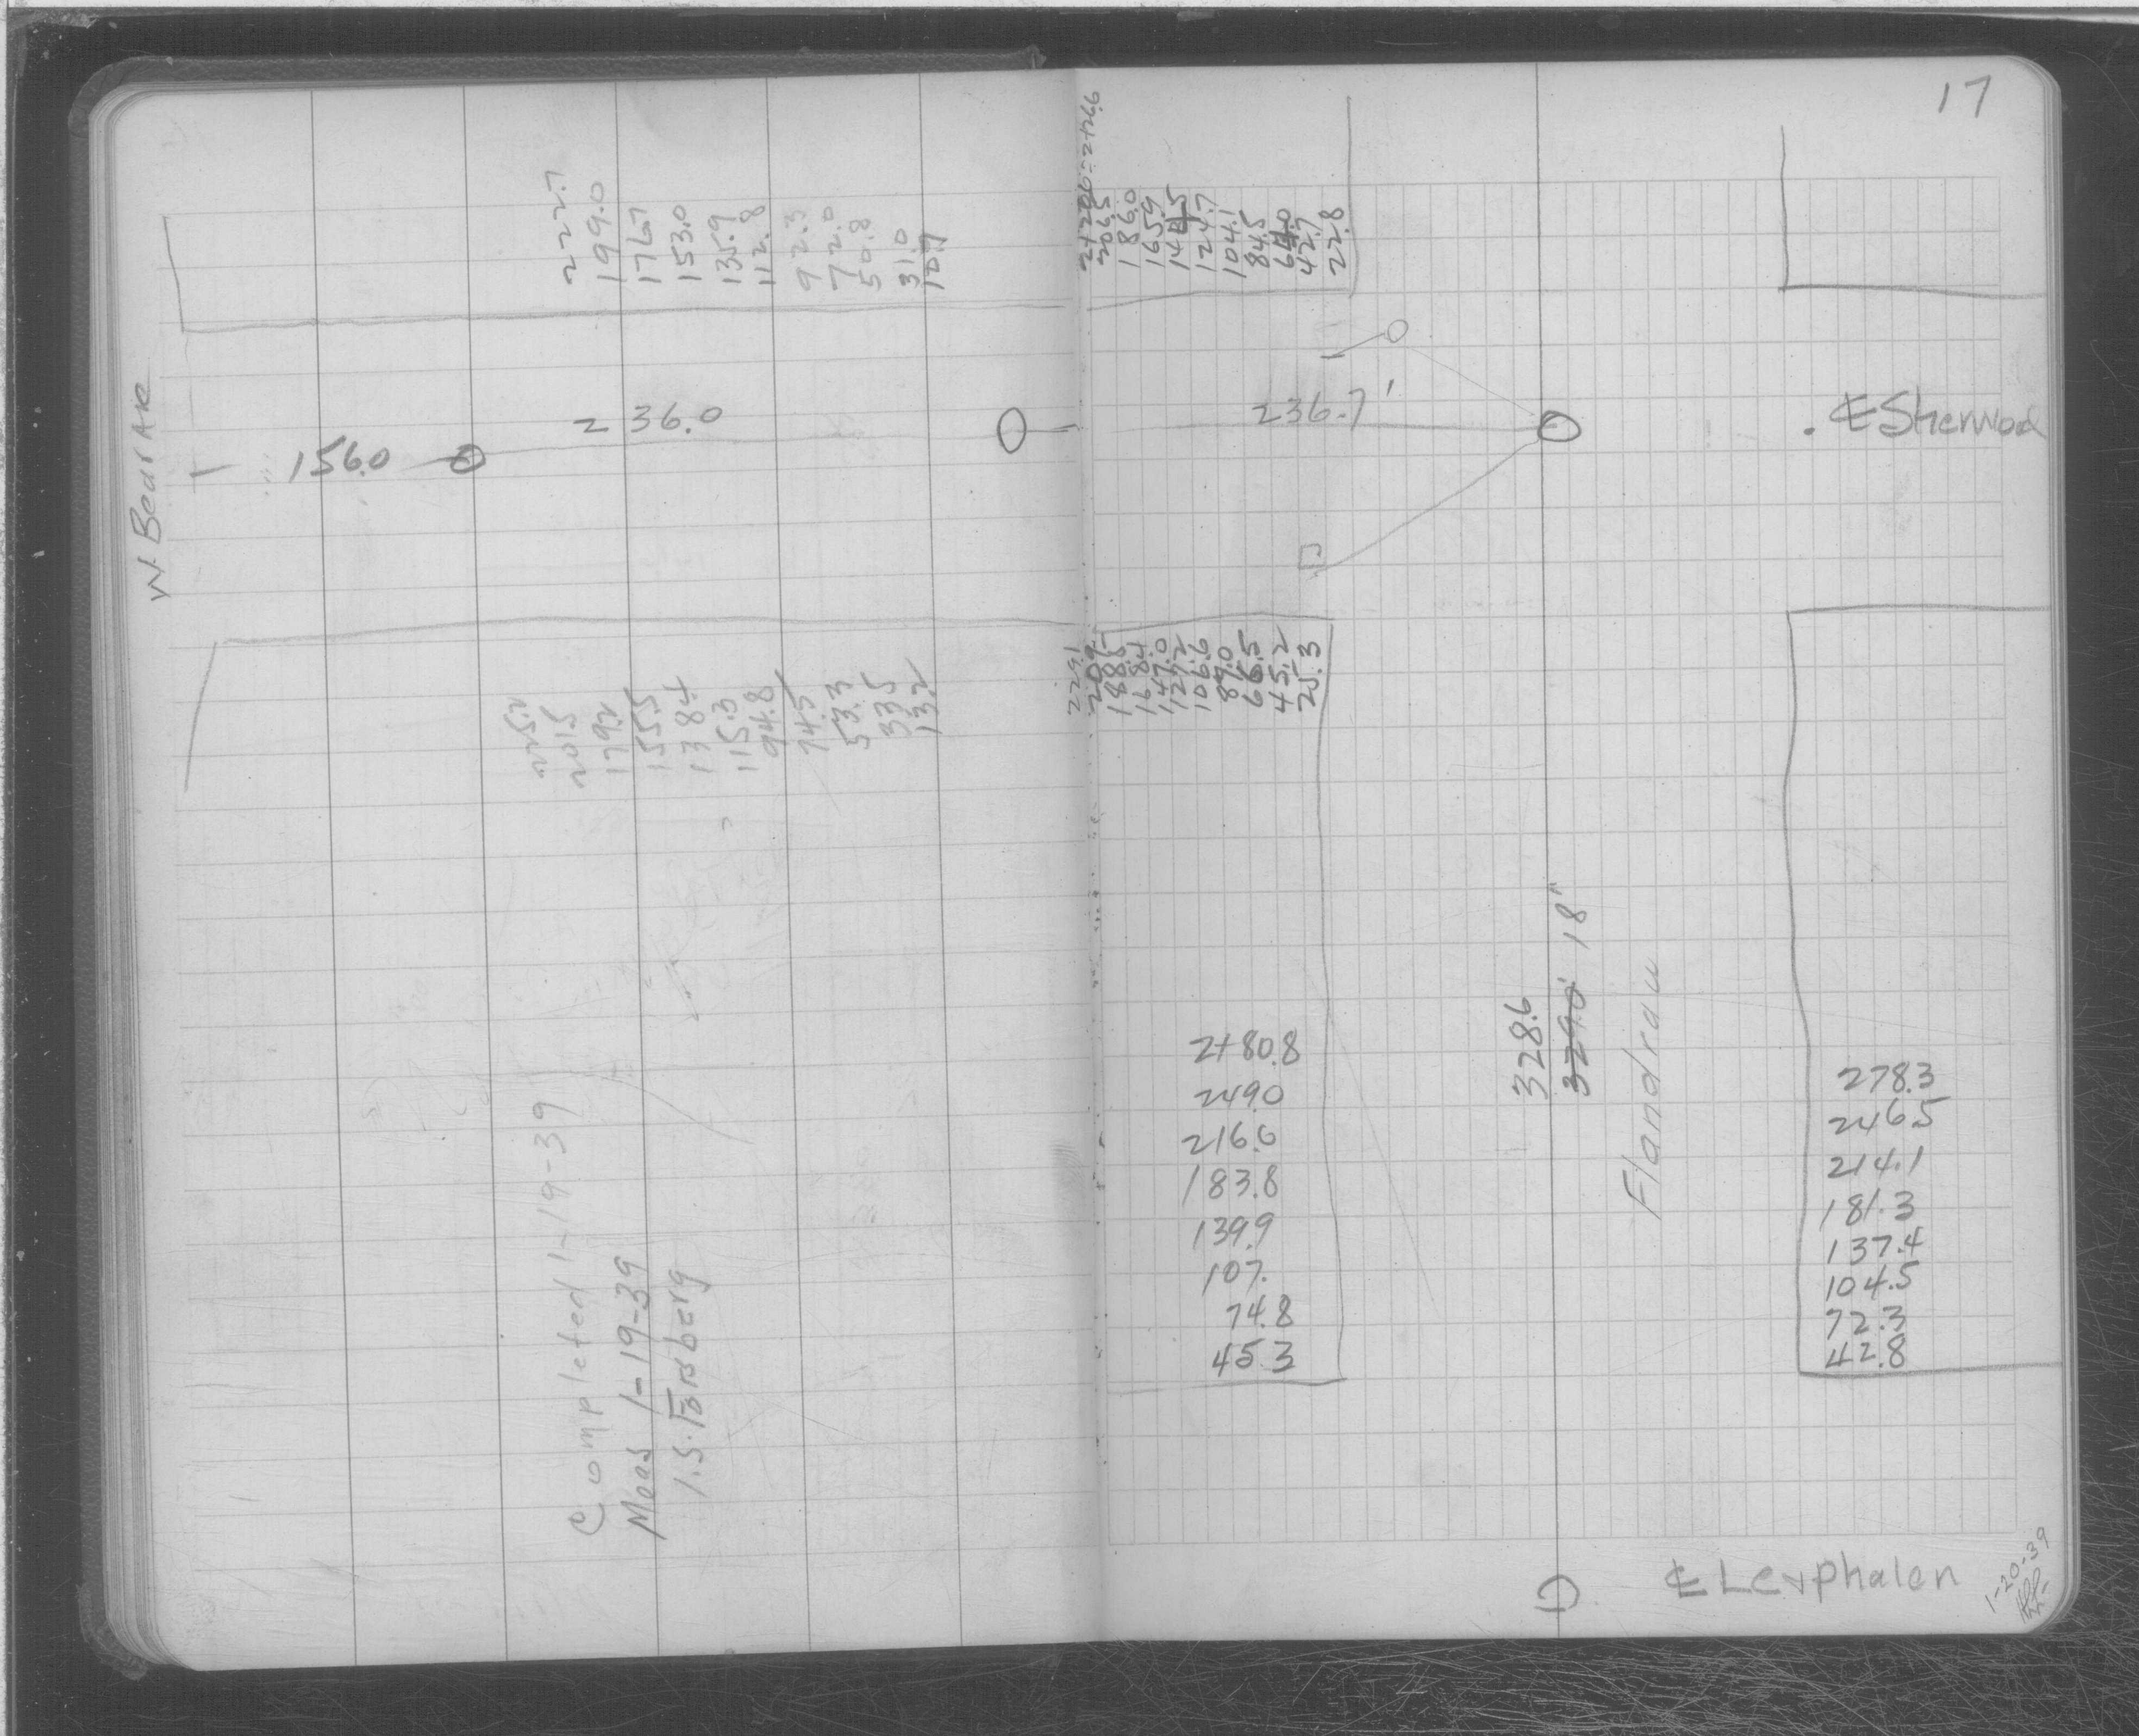 17
222.7
199.0
176.7
153.0
135.9
112.8
92.3
72.0
50.8
31.0
10.7
206.5
186.0
165.9
144.5
124.7
104.1
84.5
64.0
42.7
22.8
W. Bear Ave
156.0
236.0
236.7'
℄ Sherwood
225.2
201.5
179.2
155.5
138.4
115.3
94.8
74.5
53.3
33.5
13.2
229.1
209.
188.5
168.4
147.0
127.2
106.6
87.0
66.5
45.2
25.3
2+80.8
249.0
216.6
183.8
139.9
107.
74.8
45.3
328.6
329.0' 18"
Flandrau
278.3
246.5
214.1
181.3
137.4
104.5
72.3
42.8
Completed 1-19-39
Meas 1-19-39
I.S. Forsberg
1-20-39